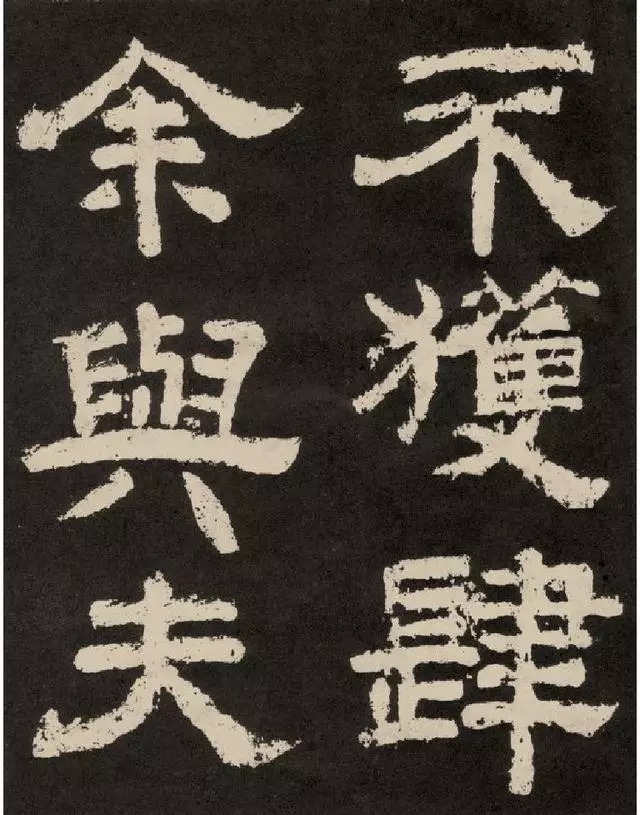 不獲肆
余與夫